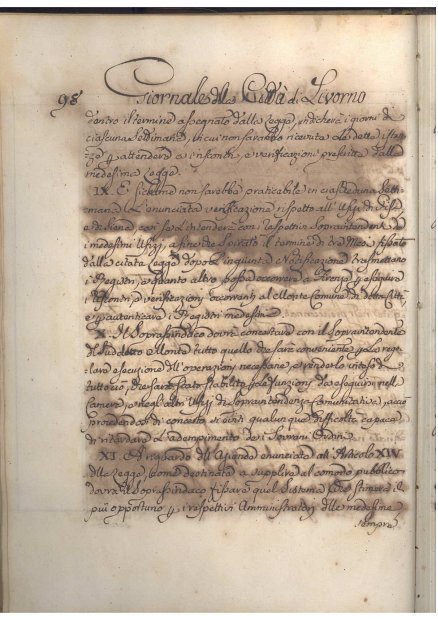 98 Giornale della Città di Livorno
dentro il termine assegnato dalla Legge, indicherà i giorni di
ciascuna Settimana, in cui non sarebbe ricevuta detta
attendere a riscontri, e verificazioni prescritte dalla
medesima Legge.
IX. E siccome non sarebbe praticabile in ciascheduna Setti-
mana L'enunciata verificazione rispetto all'Ufizj di
così se la intenderà con i rispettivi Soprintendenti
i medesimi Ufizj, a fine che spirato il termine di tre Mesi fissato
dalla citata Legge dopo L'inquinta Notificazione trasmettano
i Registri, e quanto altro possa occorrere a Firenze eseguire
i riscontri e verificazioni occorrenti al Monte Comune di detta Città
e autenticare i Registri medesimi.
X. Il Soprassindaco dovrà concertare con il Soprintendente
di suddetto Monte tutto quello che sarà conveniente per la rego-
lare esecuzione dell'operazioni necessarie, e renderlo inteso di
tutto ciò, che sarà stato stabilito per le funzioni da eseguirsi nelle
Camere, e negl'altri Ufizj di Soprintendenza Comunitativa, acciò
procedendosi di concerto si eviti qualunque difficoltà capace
di ritardare L'adempimento dei Sovrani Ordini.
XI. A riguardo dell'Azienda enunciata all'Articolo XIV
della Legge, come destinata a supplire al comodo pubblico
dovrà il Soprassindaco fissare quel Sistema che stimerà il
più opportuno per i rispettivi Amministratori delle medesime
sempre